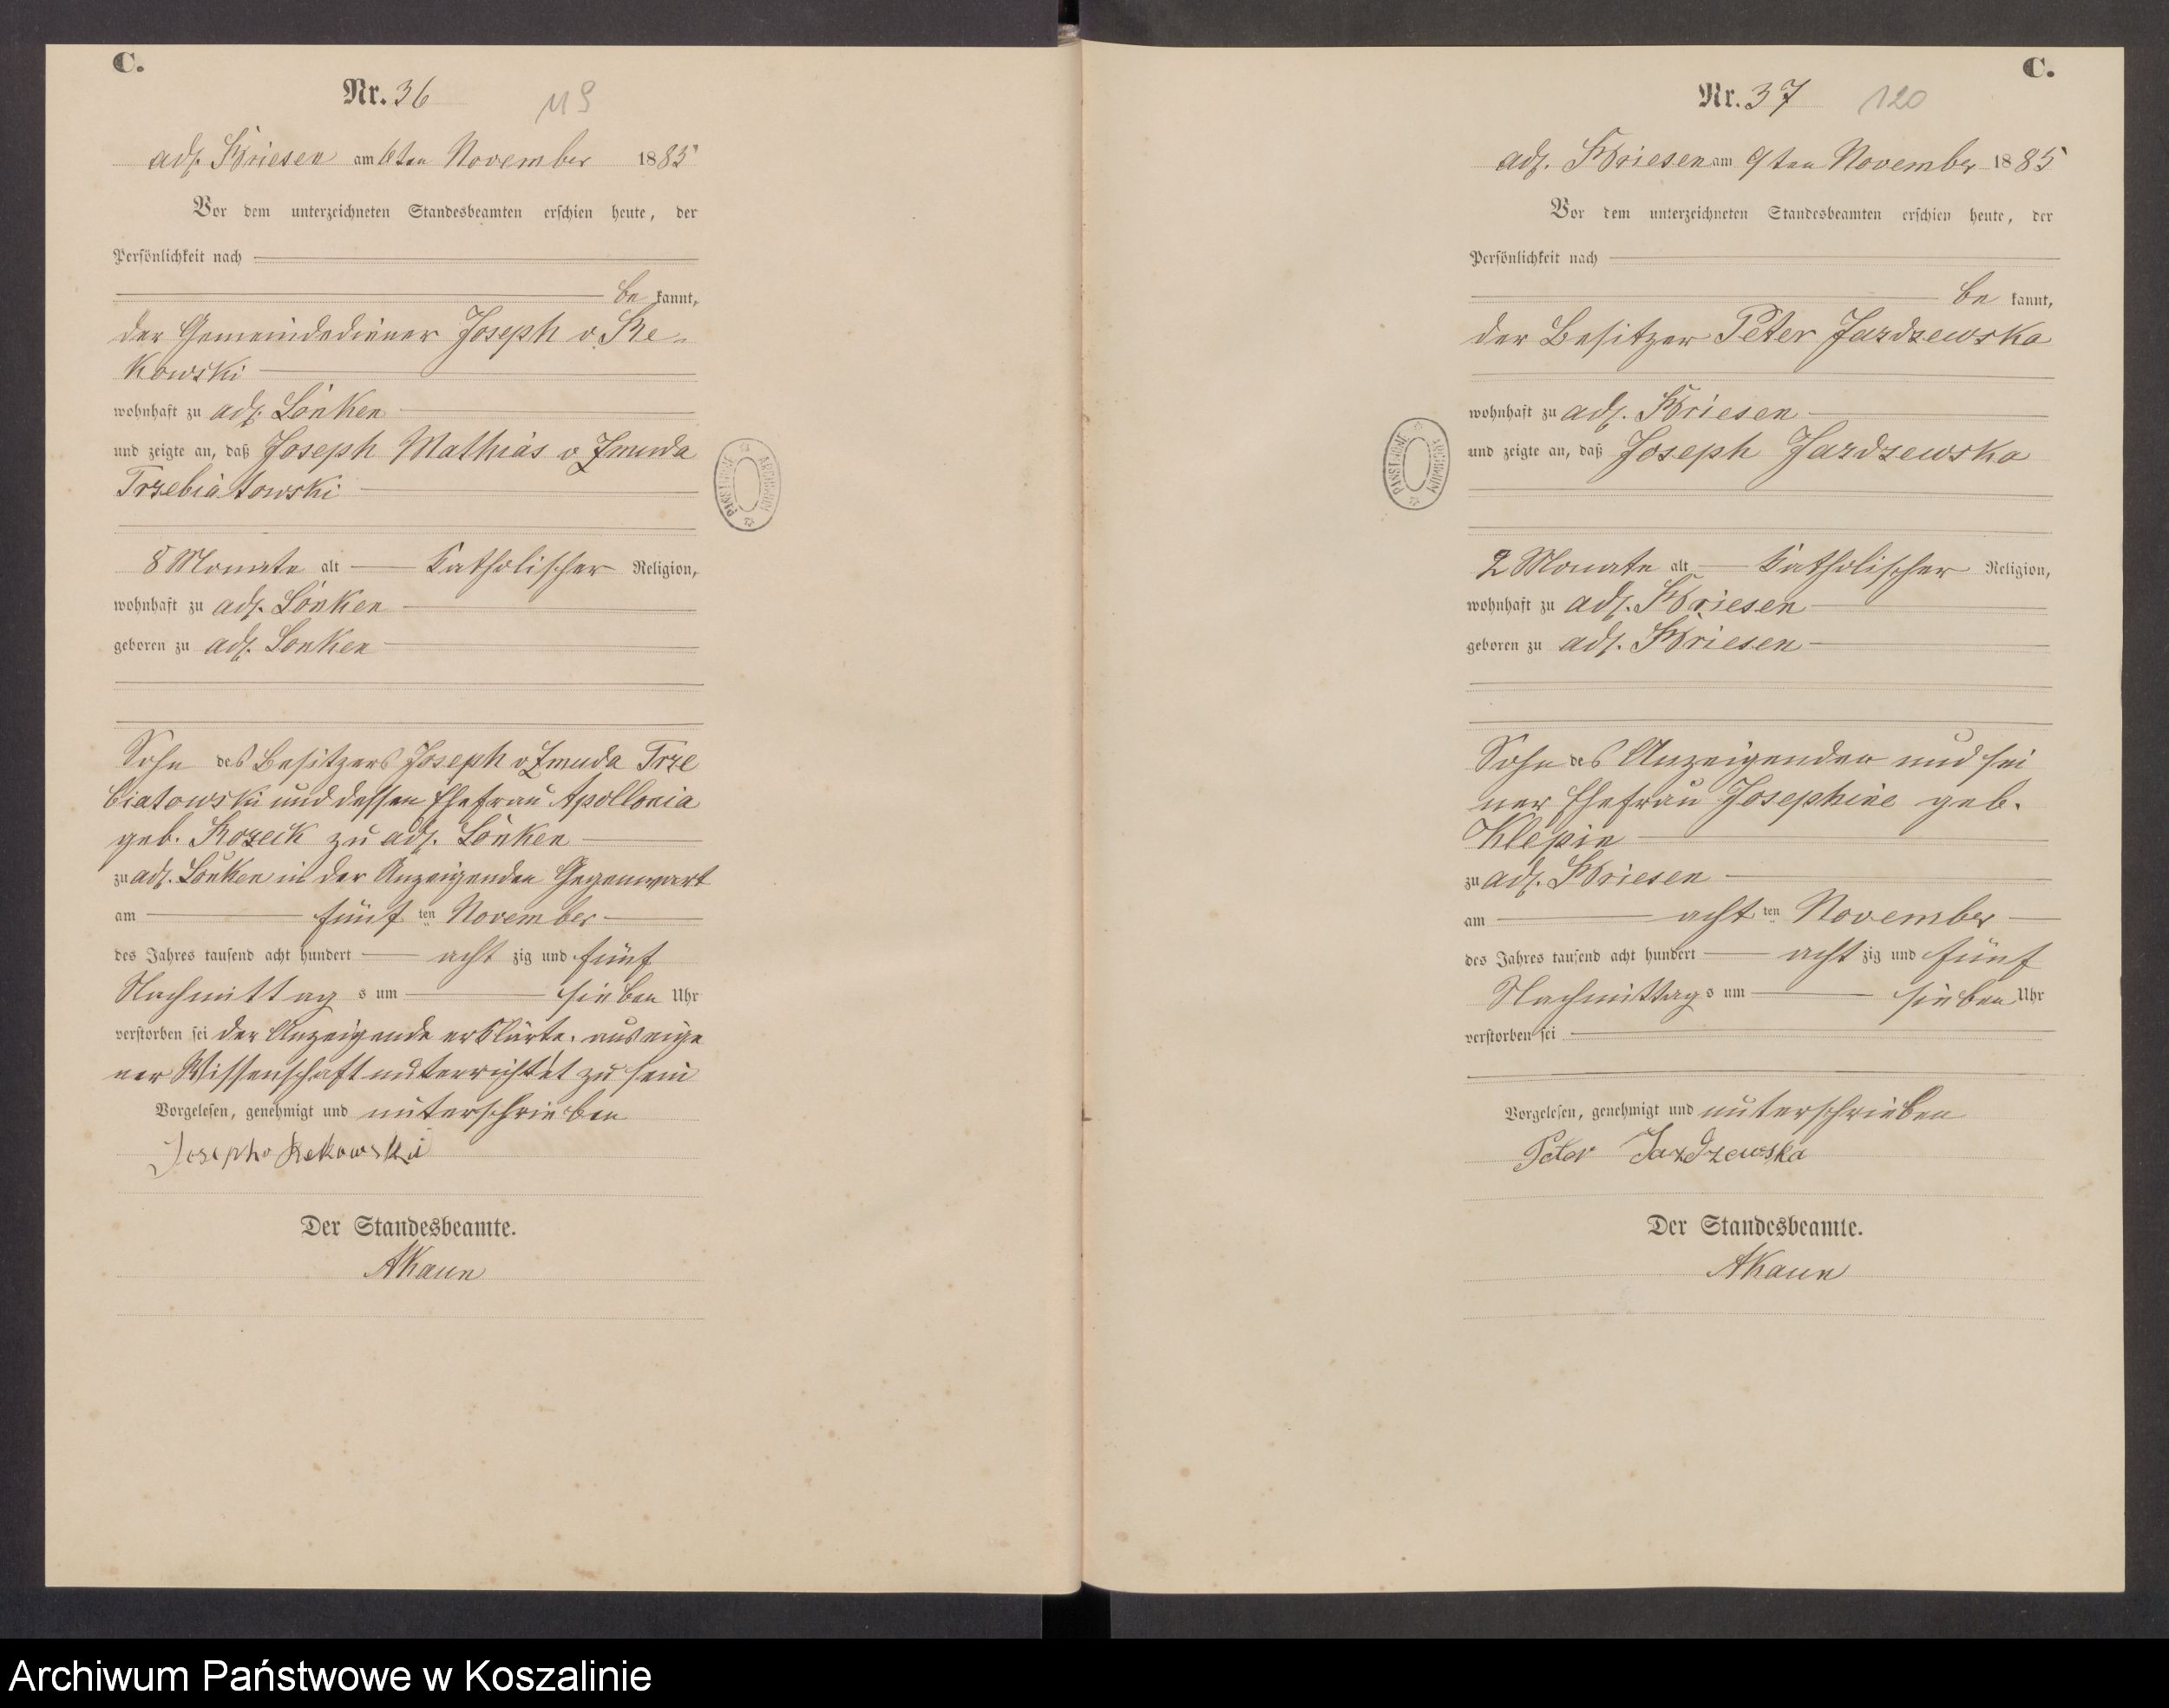 C.
Nr. 36
119
adl. Briesen am 6ten November 1885
Vor dem unterzeichneten Standesbeamten erschien heute, der
Persönlichkeit nach
be kannt,
der Gemeindediener Joseph v. Re-
kowski
wohnhaft zu adl. Lonken
und zeigte an, daß Joseph Mathias v Zmuda
Trzebiatowski
8 Monate alt katholischer Religion,
wohnhaft zu adl. Lonken
geboren zu adl. Lonken
Sohn des Besitzers Joseph v Zmuda Trze
biatowski und dessen Ehefrau Apollonia
geb. Kozeck zu adl. Lonken
zu adl. Lonken in der Anzeigenden Gegenwart
am fünf ten November
des Jahres tausend acht hundert acht zig und fünf
Nachmittag s um sieben Uhr
verstorben sei der Anzeigende erklärte, aus eige
ner Wissenschaft unterrichtet zu sein
Vorgelesen, genehmigt und unterschrieben
Joseph v Rekowski
Der Standesbeamte.
AKaun
C.
Nr. 37
120
adl. Briesen am 9ten November 1885
Vor dem unterzeichneten Standesbeamten erschien heute, der
Persönlichkeit nach
be kannt,
der Besitzer Peter Jazdzewska
wohnhaft zu adl. Briesen
und zeigte an, daß Joseph Jazdzewska
2 Monate alt katholischer Religion,
wohnhaft zu adl. Briesen
geboren zu adl. Briesen
Sohn des Anzeigenden und sei
ner Ehefrau Josephine geb.
Klepin
zu adl. Briesen
am acht ten November
des Jahres tausend acht hundert acht zig und fünf
Nachmittag s um sieben Uhr
verstorben sei
Vorgelesen, genehmigt und unterschrieben
Peter Jazdzewska
Der Standesbeamte.
AKaun
ARCHIWUM PAŃSTWOWE
ARCHIWUM PAŃSTWOWE
Archiwum Państwowe w Koszalinie